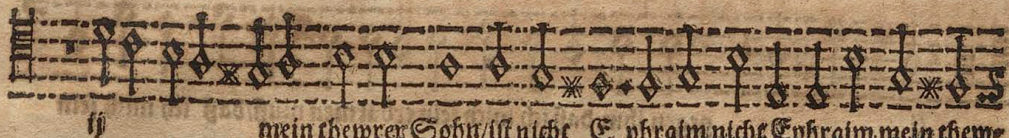 ij mein thewrer Sohn/ist nicht E phraim nicht Ephraim, mein thewr